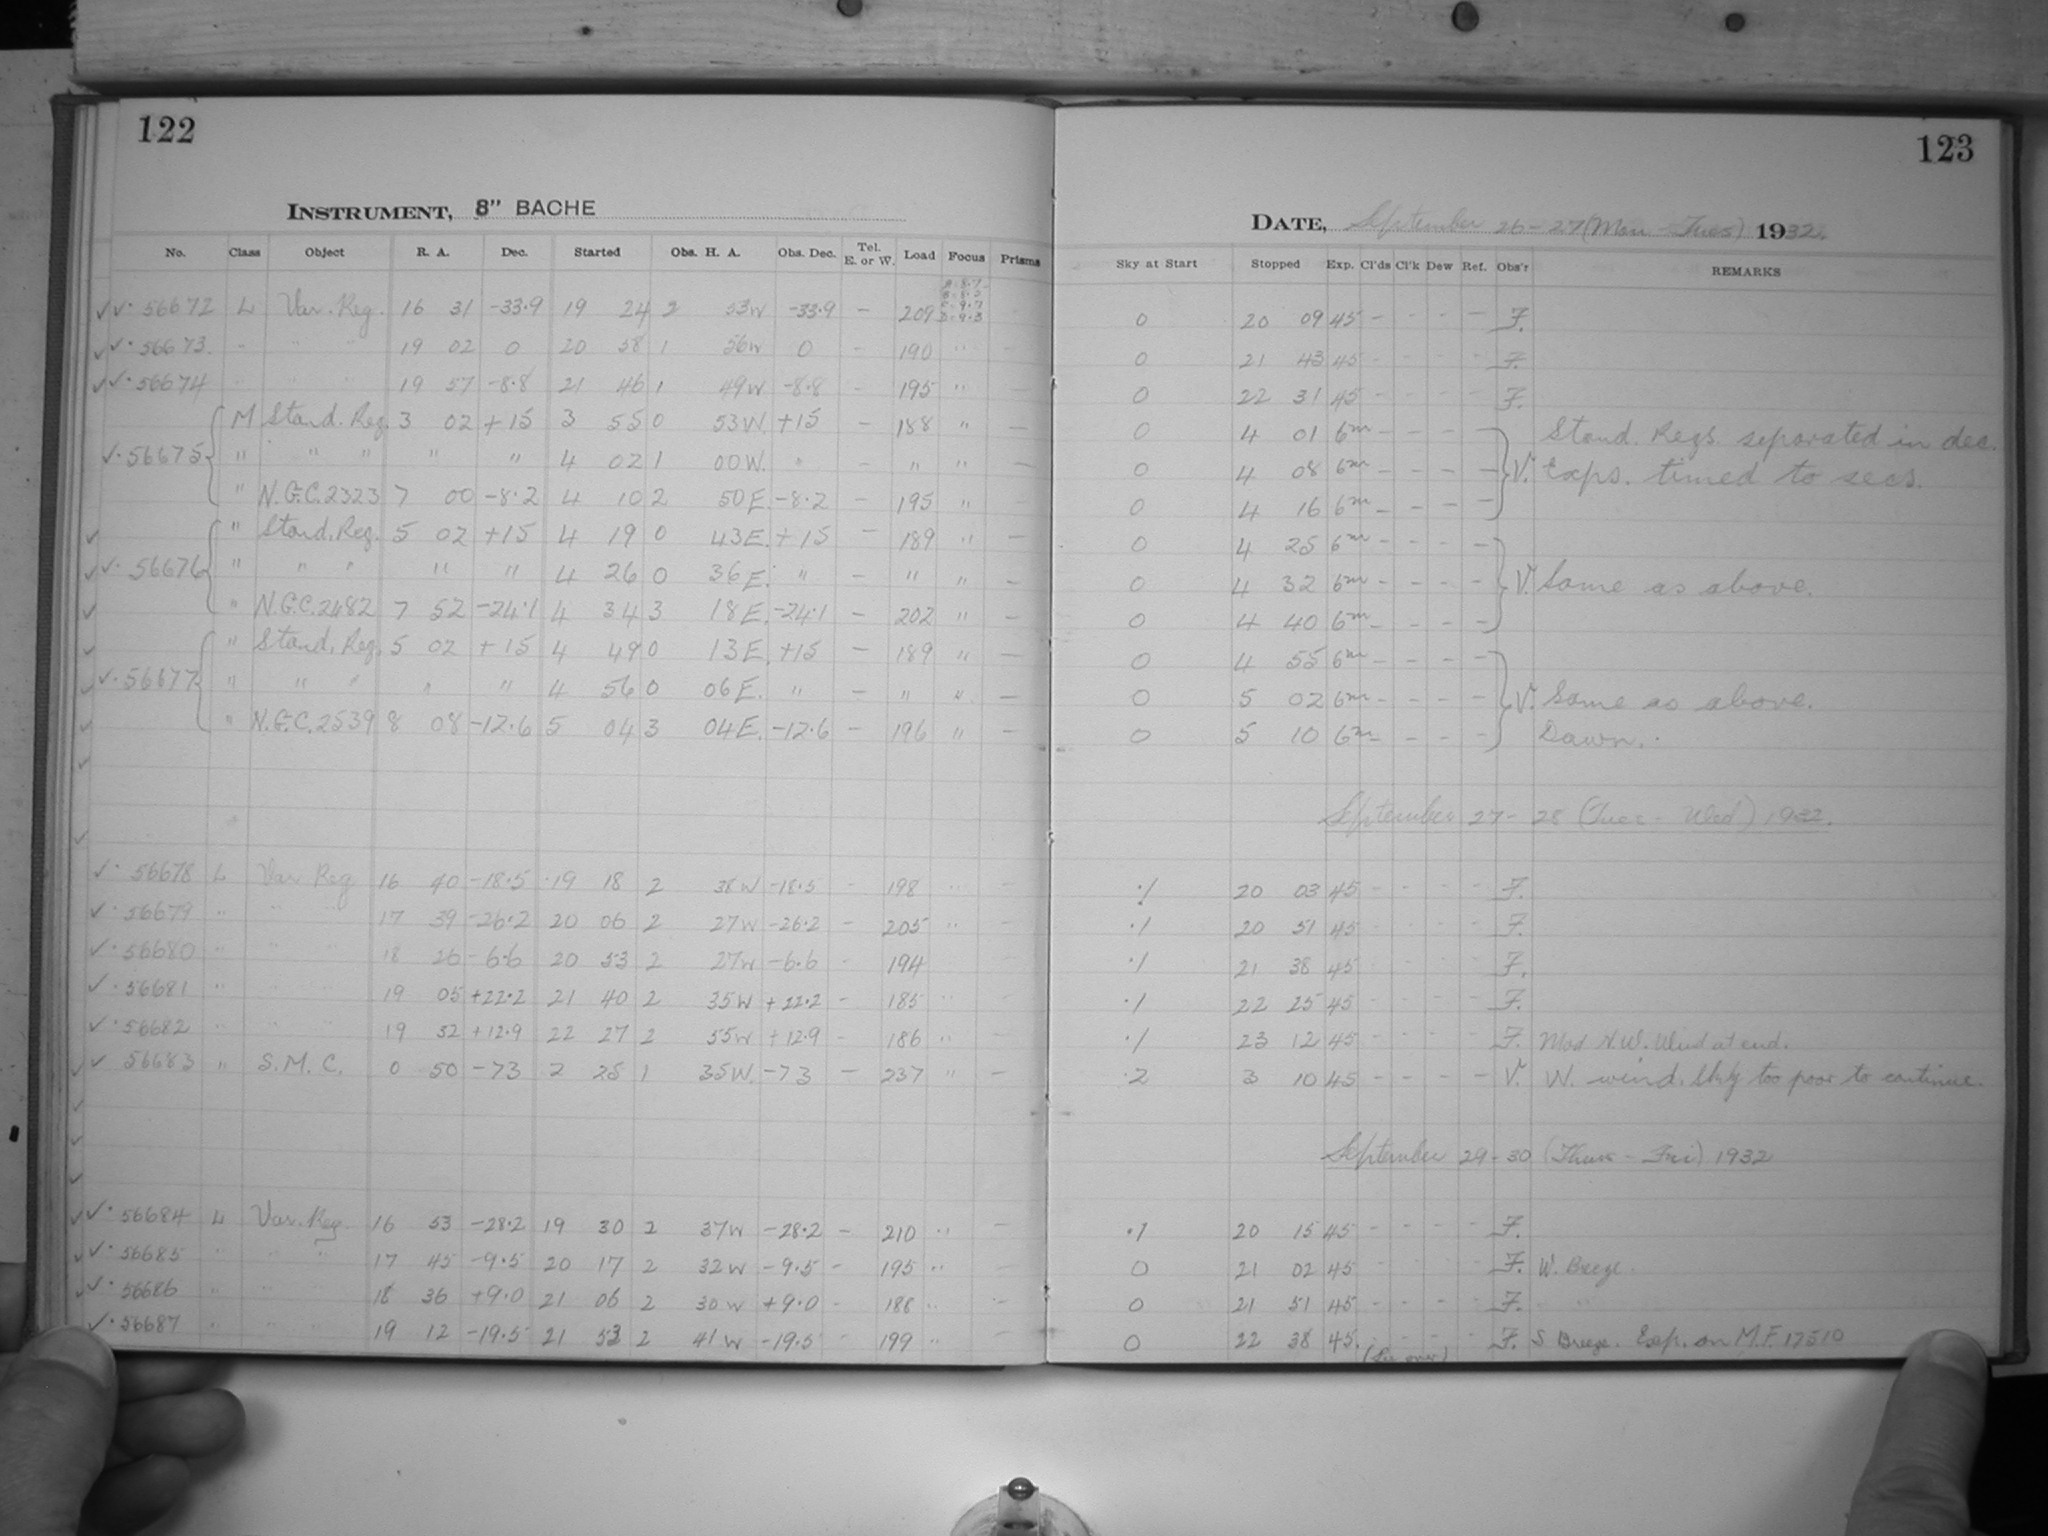 122
INSTRUMENT, 8" BACHE
No. Class Object R. A. Dec. Started Obs. H. A. Obs. Dec. Tel. E. or W. Load Focus Prisms
✓✓· 56672 L Var. Reg. 16 31 -33.9 19 24 2 53W -33.9 - 209
✓✓· 56673 " " " 19 02 0 20 58 1 56W 0 - 190 " -
✓✓· 56674 " " " 19 57 -8.8 21 46 1 49W -8.8 - 195 " -
M Stand. Reg. 3 02 +15 3 55 0 53W. +15 - 188 " -
✓· 56675 " " " " " 4 02 1 00W. " - " " -
" N.G.C. 2323 7 00 -8.2 4 10 2 50E -8.2 - 195 " -
" Stand. Reg. 5 02 +15 4 19 0 43E. +15 - 189 " -
✓· 56676 " " " " " 4 26 0 36E. " - " " -
" N.G.C. 2482 7 52 -24.1 4 34 3 18E. -24.1 - 202 " -
" Stand. Reg. 5 02 +15 4 49 0 13E. +15 - 189 " -
✓· 56677 " " " " " 4 56 0 06E. " - " " -
" N.G.C. 2539 8 08 -12.6 5 04 3 04E. -12.6 - 196 " -
✓· 56678 L Var Reg 16 40 -18.5 19 18 2 38W -18.5 - 198 " -
✓· 56679 " " " 17 39 -26.2 20 06 2 27W -26.2 - 205 " -
✓· 56680 " " " 18 26 -6.6 20 53 2 27W -6.6 - 194 -
✓· 56681 " " " 19 05 +22.2 21 40 2 35W +22.2 - 185 " -
✓· 56682 " " " 19 32 +12.9 22 27 2 55W +12.9 - 186 " -
✓ 56683 " S.M.C. 0 50 -73 2 25 1 35W. -73 - 237 " -
✓· 56684 L Var. Reg. 16 53 -28.2 19 30 2 37W -28.2 - 210 " -
✓· 56685 " " " 17 45 -9.5 20 17 2 32W -9.5 - 195 " -
✓· 56686 " " " 18 36 +9.0 21 06 2 30W +9.0 - 188 " -
✓· 56687 " " " 19 12 -19.5 21 53 2 41W -19.5 - 199 " -
123
DATE, September 26-27 (Mon - Tues) 1932.
Sky at Start Stopped Exp. Cl'ds Cl'k Dew Ref. Obs'r REMARKS
0 20 09 45 - - - - F.
0 21 43 45 - - - - F.
0 22 31 45 - - - - F.
0 4 01 6m - - - - Stand. Regs. separated in dec.
0 4 08 6m - - - - V. Exps. timed to secs.
0 4 16 6m - - - -
0 4 25 6m - - - -
0 4 32 6m - - - - V. Same as above.
0 4 40 6m - - - -
0 4 55 6m - - - -
0 5 02 6m - - - - V. Same as above.
0 5 10 6m - - - - Dawn.
September 27 - 28 (Tues - Wed) 1932.
.1 20 03 45 - - - - F.
.1 20 51 45 - - - - F.
.1 21 38 45 - - - - F.
.1 22 25 45 - - - - F.
.1 23 12 45 - - - - F. Mod N.W. Wind at end.
.2 3 10 45 - - - - V. W. wind. Sky too poor to continue.
September 29-30 (Thurs - Fri) 1932
.1 20 15 45 - - - - F.
0 21 02 45 - - - - F. W. Breeze.
0 21 51 45 - - - - F. "
0 22 38 45. - - - - F. S Breeze. Exp. on M.F. 17510
(See over)